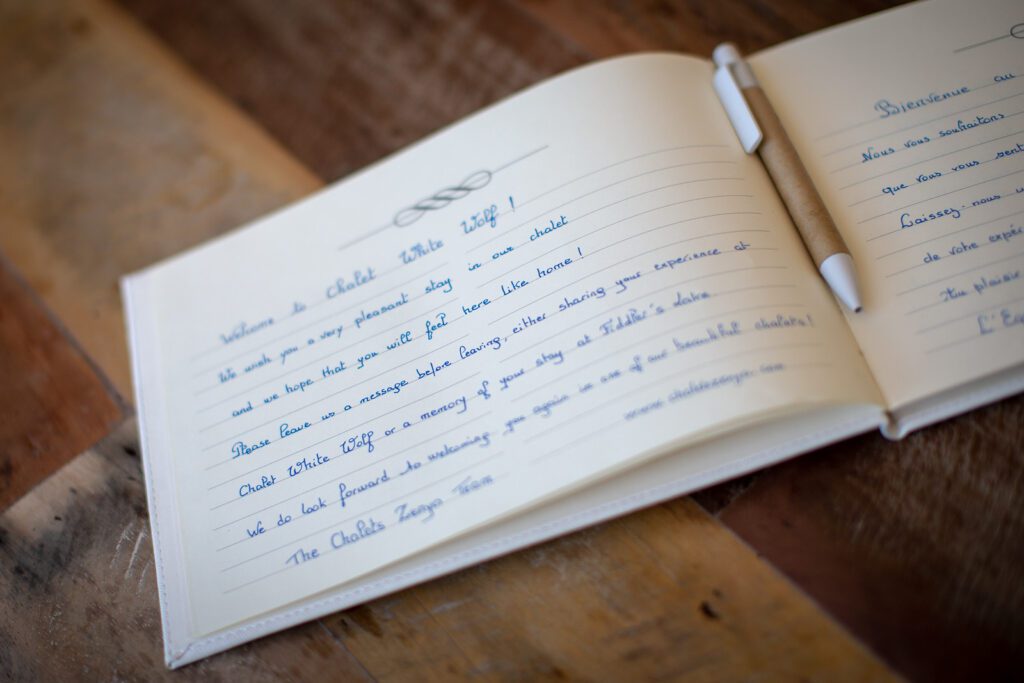 Welcome to Chalet White Wolf !
We wish you a very pleasant stay in our chalet
and we hope that you will feel here like home !
Please leave us a message before leaving, either sharing your experience at
Chalet White Wolf or a memory of your stay at Fiddler's Lake.
We do look forward to welcoming you again in one of our beautiful chalets !
The Chalets Zenya Team
www.chaletszenya.com
Bienvenue au
Nous vous souhaitons
que vous vous sent
Laissez-nous u
de votre expér
Au plaisir
L'Eq